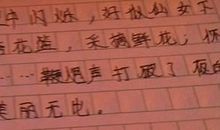 中闪烁，好似仙女下
花篮，采摘鲜花；你
……鞭炮声打破了夜的
美丽无电。